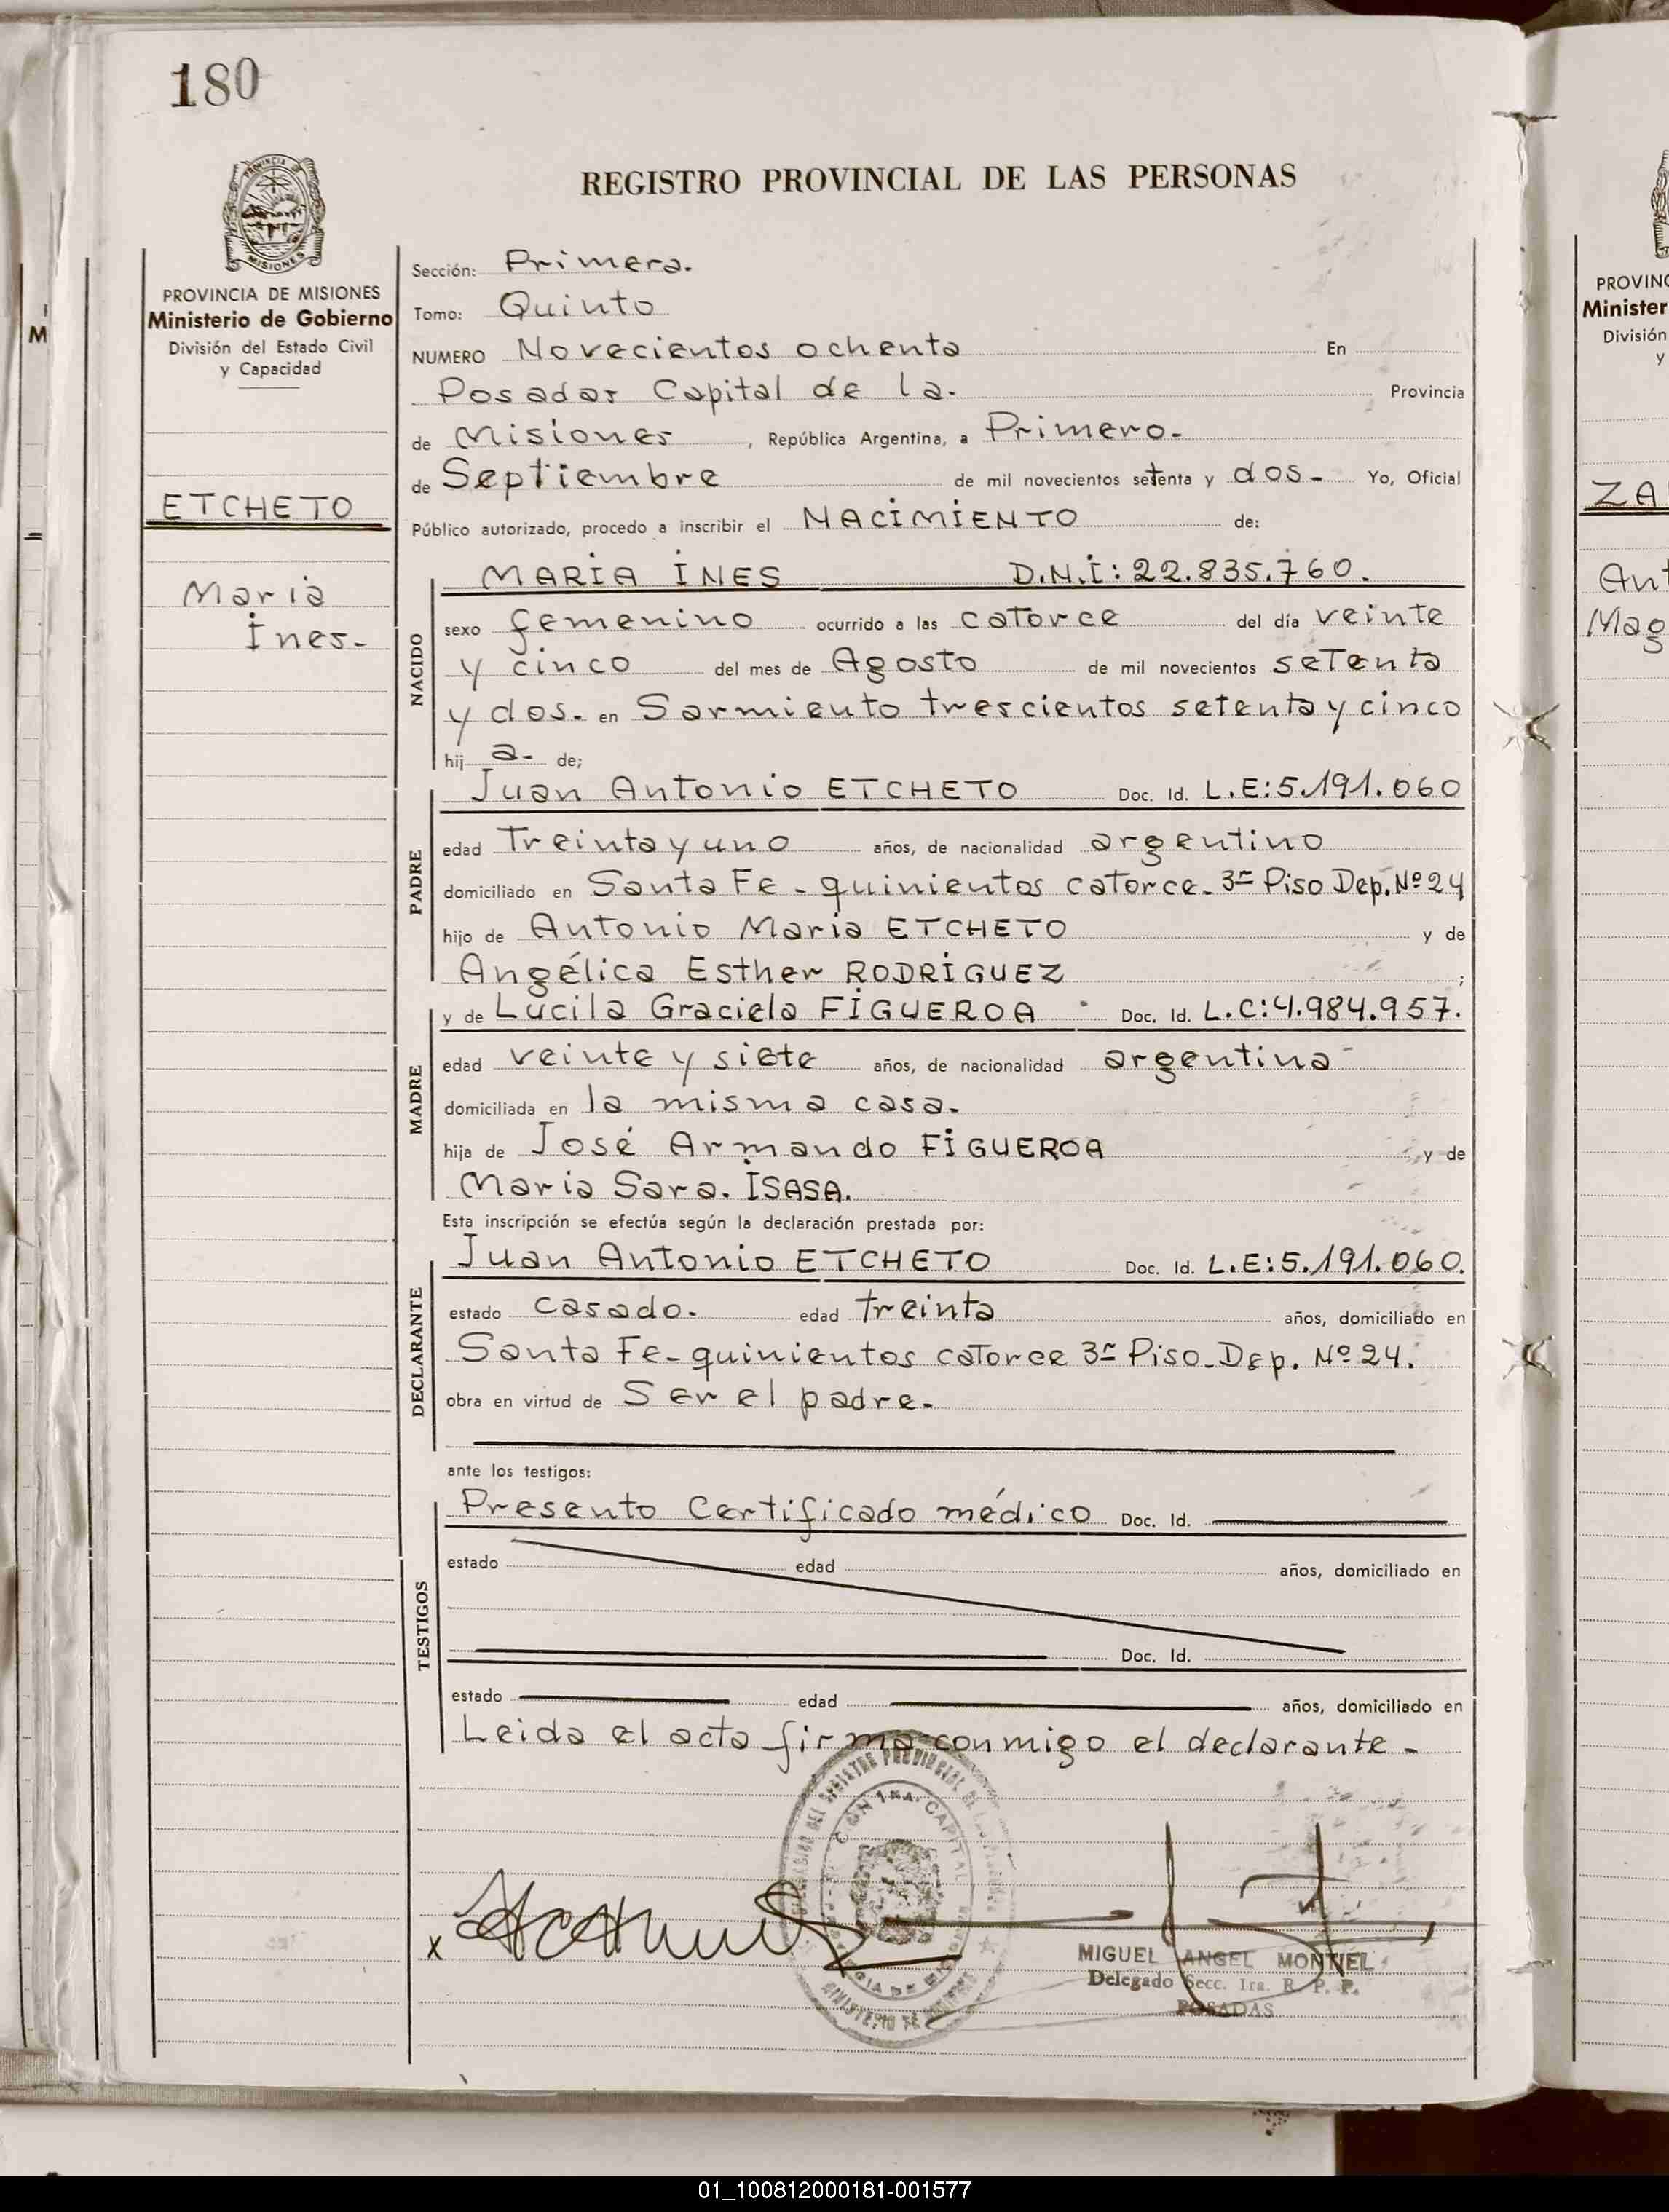 180
REGISTRO PROVINCIAL DE LAS PERSONAS
PROVINCIA DE MISIONES
PROVINCIA DE MISIONES
Ministerio de Gobierno
División del Estado Civil
y Capacidad
ETCHETO
Maria
Ines.-
Sección: Primera.
Tomo: Quinto
NUMERO Novecientos ochenta En
Posadas Capital de la. Provincia
de Misiones, República Argentina, a Primero.-
de Septiembre de mil novecientos setenta y dos.- Yo, Oficial
Público autorizado, procedo a inscribir el NACIMIENTO de:
NACIDO
MARIA INES D.N.I: 22.835.760.
sexo femenino ocurrido a las catorce del día veinte
y cinco del mes de Agosto de mil novecientos setenta
y dos.- en Sarmiento trescientos setenta y cinco
hij a.- de;
PADRE
Juan Antonio ETCHETO Doc. Id. L.E:5.191.060
edad Treinta y uno años, de nacionalidad argentino
domiciliado en Santa Fe - quinientos catorce- 3er Piso Dep. Nº 24
hijo de Antonio Maria ETCHETO y de
Angélica Esther RODRIGUEZ ;
MADRE
y de Lucila Graciela FIGUEROA Doc. Id. L.C:4.984.957.
edad veinte y siete años, de nacionalidad argentina
domiciliada en la misma casa.
hija de José Armando FIGUEROA y de
Maria Sara. ISASA.
Esta inscripción se efectúa según la declaración prestada por:
DECLARANTE
Juan Antonio ETCHETO Doc. Id. L.E:5.191.060.
estado casado. edad treinta años, domiciliado en
Santa Fe- quinientos catorce 3er Piso- Dep. Nº 24.
obra en virtud de Ser el padre.-
ante los testigos:
TESTIGOS
Presento Certificado médico Doc. Id.
estado edad años, domiciliado en
Doc. Id.
estado edad años, domiciliado en
Leida el acta firma conmigo el declarante.-
x
1RA. CAPITAL
MIGUEL ANGEL MONTIEL
Delegado Secc. 1ra. R. P. P.
POSADAS
M
PROVINC
Minister
División
y
ZA
Ant
Mag
01_100812000181-001577